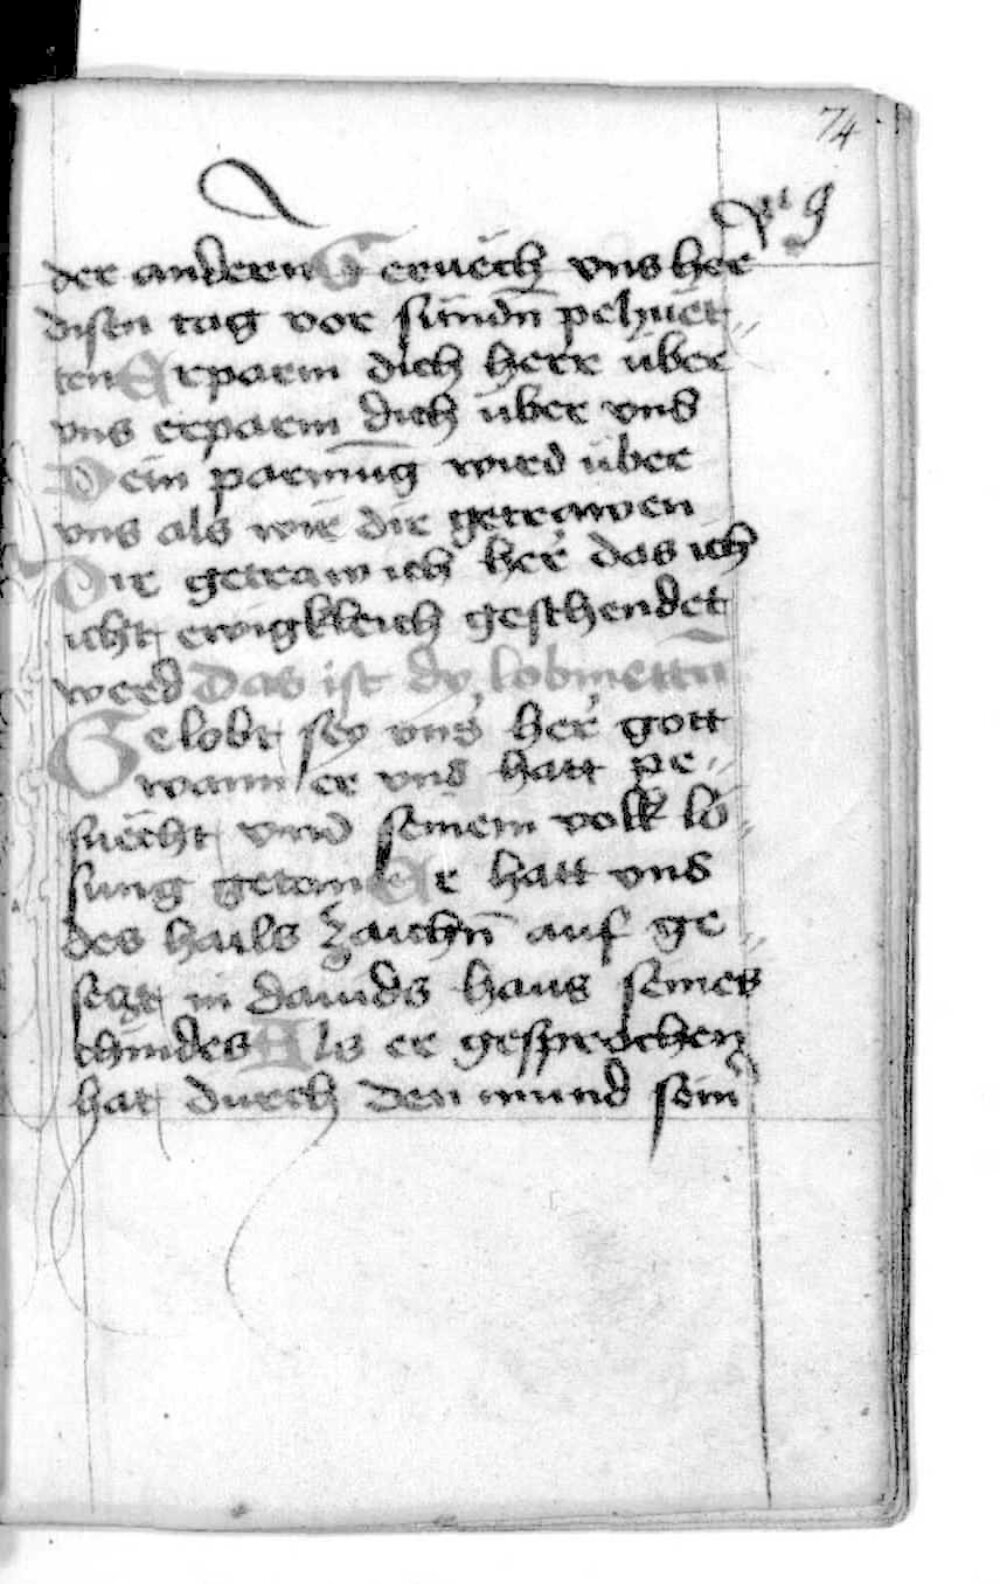 74
der andern Geruech vns her
disen tag vor sündn̄ pehuet
ten Erparm dich herr über
vns erparm dich über vns
Dein parmūg wird über
vns als wir dir getrawen
Dir getraw ich her das ich
icht ewigkleich geschendet
werd Das ist dy lobmettn̄
Gelobt sey vns' her' gott
wann er vns hatt pe
suecht vnd seinem volk lö
sung getan Er hatt vns
des hails zaichn̄ auf ge
seczt in dauids haus seines
chindes Als er gesprochen
hat durch den mund sein